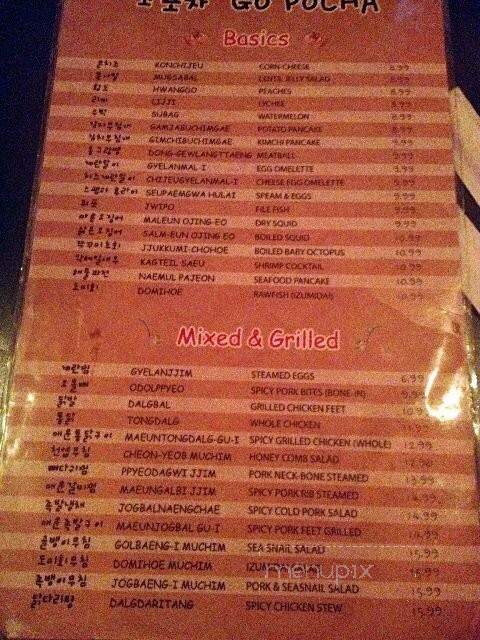 고포차 GO POCHA
Basics
콘치즈 KONCHIJEU CORN CHEESE 8.99
MUGSABAL JELLY SALAD 8.99
황도 HWANGDO PEACHES 8.99
리찌 LIJJI LYCHEE 8.99
수박 SUBAG WATERMELON 8.99
감자부침개 GAMJABUCHIMGAE POTATO PANCAKE 9.99
김치부침개 GIMCHIBUCHIMGAE KIMCHI PANCAKE 9.99
동그랑땡 DONG-GEWLANGTTAENG MEATBALL 9.99
계란말이 GYELANMAL-I EGG OMELETTE 9.99
치즈계란말이 CHIJEUGYELANMAL-I CHEESE EGG OMELETTE 9.99
스팸과 후라이 SEUPAEMGWA HULAI SPEAM & EGGS 9.99
쥐포 JWIPO FILE FISH 9.99
마른오징어 MALEUN OJING-EO DRY SQUID 9.99
삶은오징어 SALM-EUN OJING EO BOILED SQUID 10.99
쭈꾸미초회 JJUKKUMI-CHOHOE BOILED BABY OCTOPUS 10.99
칵테일새우 KAGTEIL SAEU SHRIMP COCKTAIL 10.99
해물파전 NAEMUL PAJEON SEAFOOD PANCAKE 10.99
도미회 DOMIHOE RAWFISH (IZUMIDAI) 10.99
Mixed & Grilled
계란찜 GYELANJJIM STEAMED EGGS 6.99
오돌뼈 ODOLPPYEO SPICY PORK BITES (BONE-IN) 9.99
닭발 DALGBAL GRILLED CHICKEN FEET 10.99
통닭 TONGDALG WHOLE CHICKEN 11.99
매운통닭구이 MAEUNTONGDALG-GU-I SPICY GRILLED CHICKEN (WHOLE) 12.99
천엽무침 CHEON-YEOB MUCHIM HONEY COMB SALAD 12.99
뼈다귀찜 PPYEODAGWI JJIM PORK NECK-BONE STEAMED 13.99
매운갈비찜 MAEUNGALBI JJIM SPICY PORK RIB STEAMED 14.99
족발냉채 JOGBALNAENGCHAE SPICY COLD PORK SALAD 14.99
매운족발구이 MAEUNJOGBAL GU-I SPICY PORK FEET GRILLED 14.99
골뱅이무침 GOLBAENG-I MUCHIM SEA SNAIL SALAD 15.99
도미회무침 DOMIHOE MUCHIM SALAD 15.99
족뱅이무침 JOGBAENG-I MUCHIM PORK & SEASNAIL SALAD 15.99
닭다리탕 DALGDARITANG SPICY CHICKEN STEW 15.99
menupix